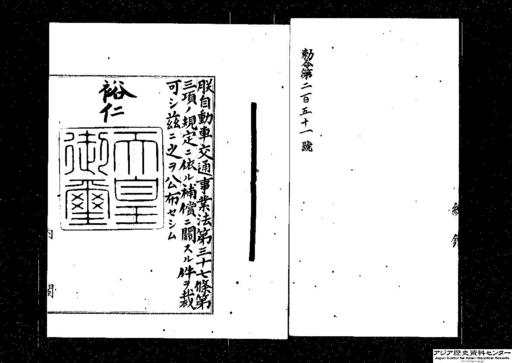 勅令第二百五十一號
朕自動車交通事業法第三十七條第
三項ノ規定ニ依ル補償ニ關スル件ヲ裁
可シ茲ニ之ヲ公布セシム
裕仁
天皇
御璽
內閣
アジア歴史資料センター
Japan Center for Asian Historical Records